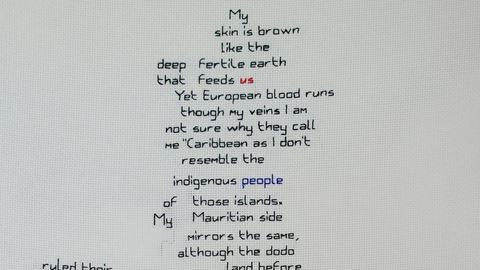 My
skin is brown
like the
deep fertile earth
that feeds us
Yet European blood runs
though my veins I am
not sure why they call
me "Caribbean as I don't
resemble the
indigenous people
of those islands.
My Mauritian side
mirrors the same,
although the dodo
ruled their land before